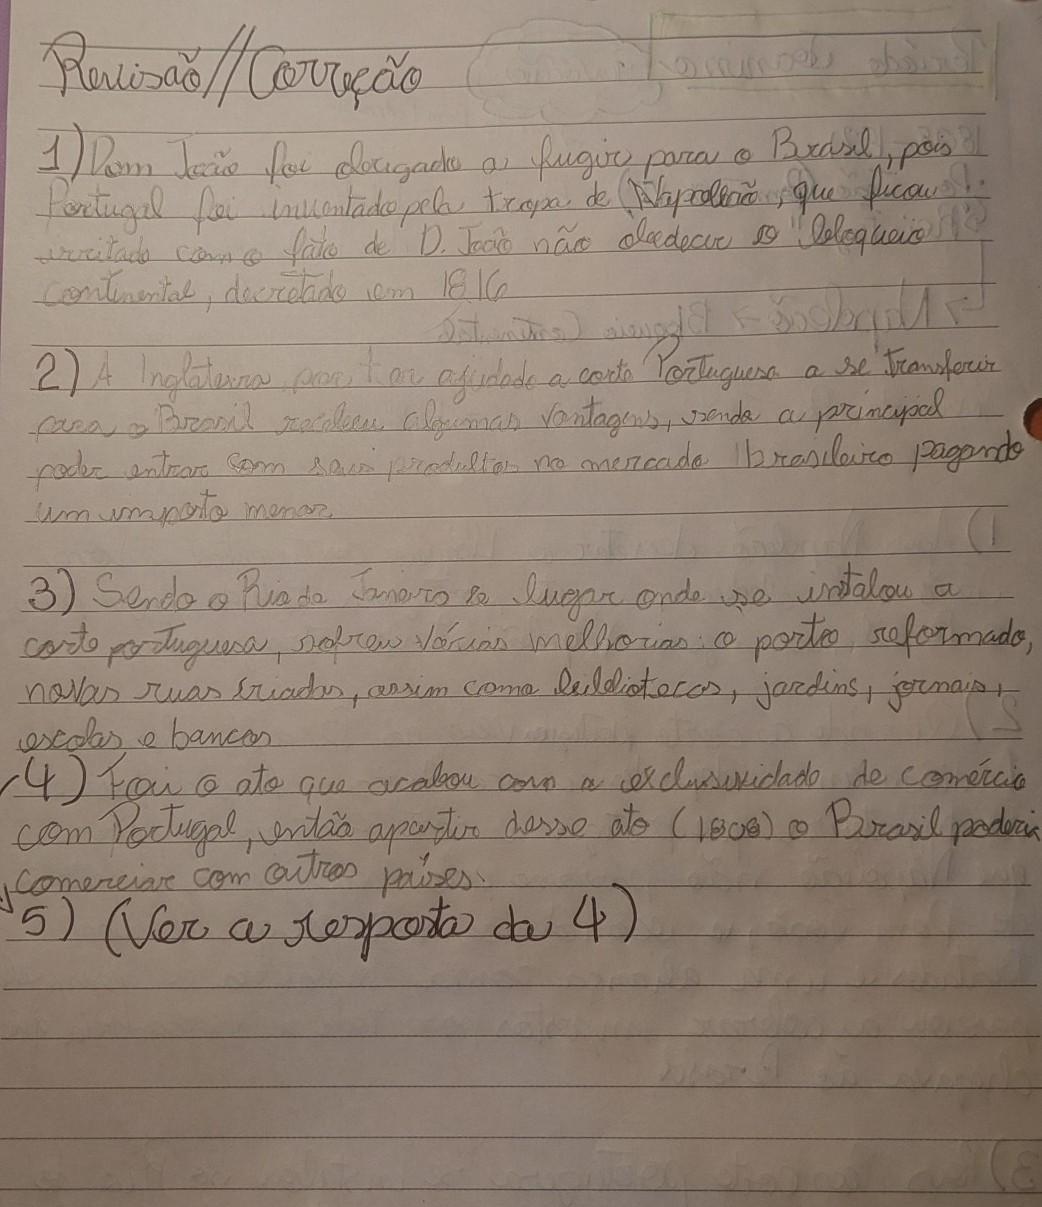 Revisão//Correção
1) Dom João foi obrigado a fugir para o Brasil, pois
Portugal foi inventado pela tropa de Napoleão, que ficou
irritado com o fato de D. João não obedecer o Bloqueio
Continental, decretado em 1816
2) A Inglaterra, por ter ajudado a corte Portuguesa a se transferir
para o Brasil recebeu algumas vantagens, sendo a principal
poder entrar com seus produltos no mercado brasileiro pagando
um imposto menor
3) Sendo o Rio de Janeiro o lugar onde se instalou a
corte portuguesa, sofreu várias melhorias: o porto reformado,
novas ruas criadas, assim como bibliotecas, jardins, jornais,
escolas e bancos
4) Foi o ato que acabou com a exclusividade de comércio
com Portugal, então apartir desse ato (1808) o Brasil poderia
comerciar com outros países.
5) (Ver a resposta da 4)